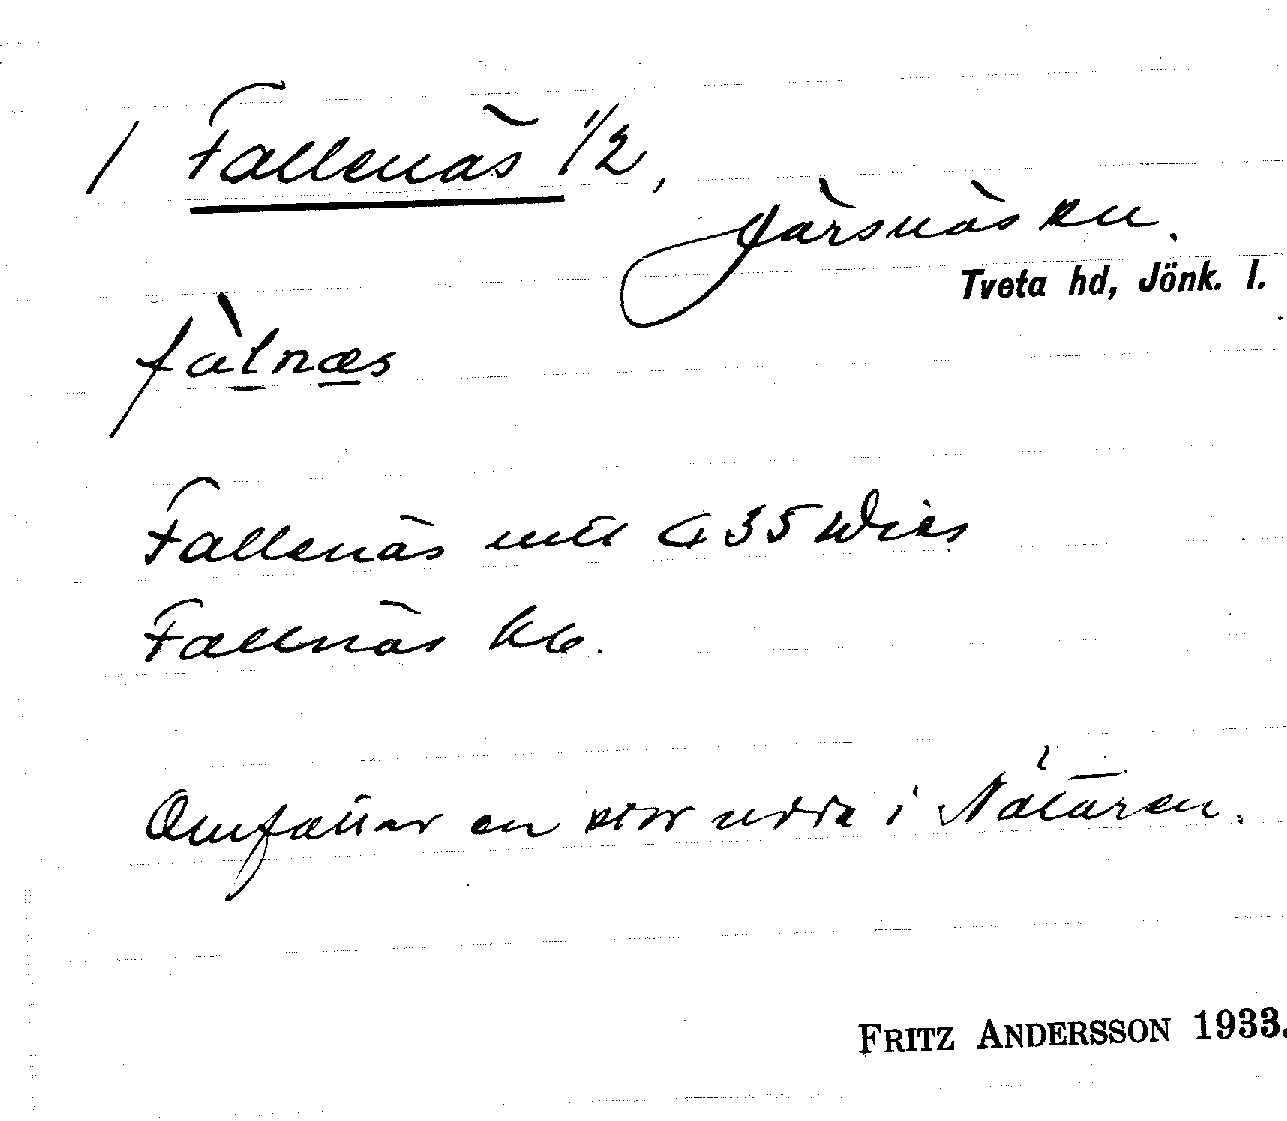 / Fallenäs 1/2,
Järsnäs sn.
Tveta hd, Jönk. l.
fàlnæs
Fallenäs mtl G 35 Wies
Fallnäs kb.
Omfattar en stor udde i Nätaren.
FRITZ ANDERSSON 1933.